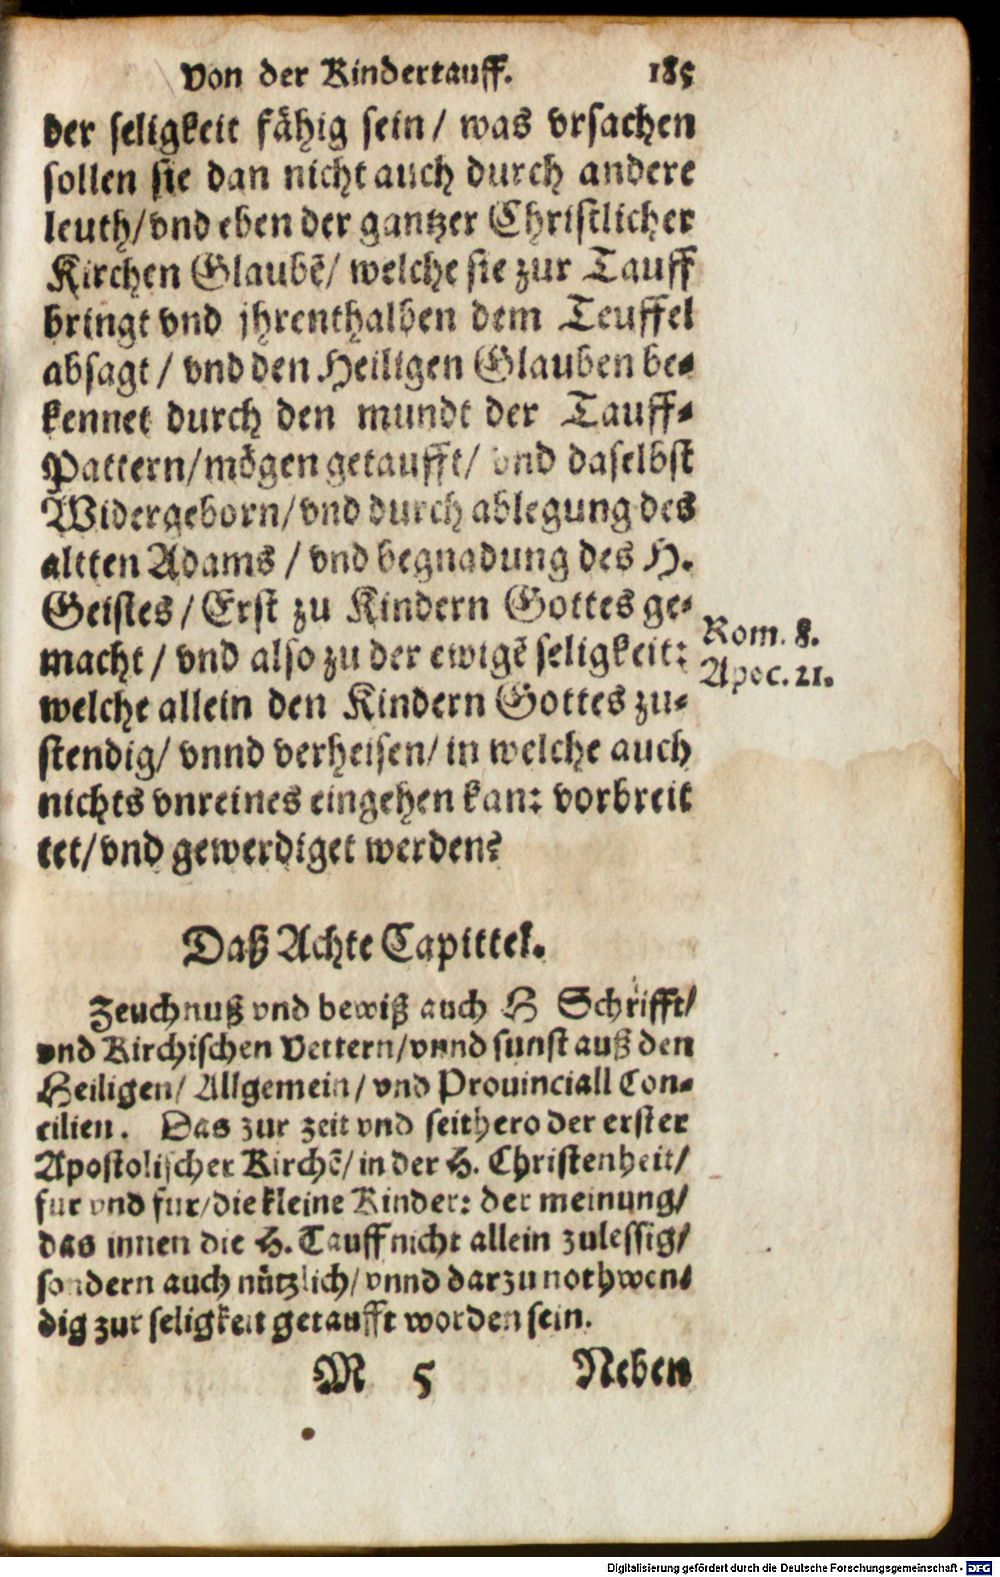 Von der Kindertauff. 185
der seligkeit fähig sein/ was vrsachen
sollen sie dan nicht auch durch andere
leuth/vnd eben der gantzer Christlicher
Kirchen Glaubẽ/ welche sie zur Tauff
bringt vnd jhrenthalben dem Teuffel
absagt/ vnd den Heiligen Glauben be-
kennet durch den mundt der Tauff-
Pattern/mögen getaufft/ vnd daselbst
Widergeborn/vnd durch ablegung des
altten Adams/ vnd begnadung des H.
Geistes/ Erst zu Kindern Gottes ge-
macht/ vnd also zu der ewigẽ seligkeit:
Rom. 8.
Apoc. 21.
welche allein den Kindern Gottes zu-
stendig/ vnnd verheisen/ in welche auch
nichts vnreines eingehen kan: vorbreit
tet/vnd gewerdiget werden?
Daß Achte Capittel.
Zeuchnuß vnd bewiß auch H Schrifft/
vnd Kirchischen Vettern/vnnd sunst auß den
Heiligen/ Allgemein/ vnd Prouinciall Con-
cilien. Das zur zeit vnd seithero der erster
Apostolischer Kirchẽ/in der H. Christenheit/
fur vnd fur/die kleine Kinder: der meinung/
das innen die H. Tauff nicht allein zulessig/
sondern auch nützlich/vnnd darzu nothwen-
dig zur seligkeit getaufft worden sein.
M 5 Neben
Digitalisierung gefördert durch die Deutsche Forschungsgemeinschaft - DFG